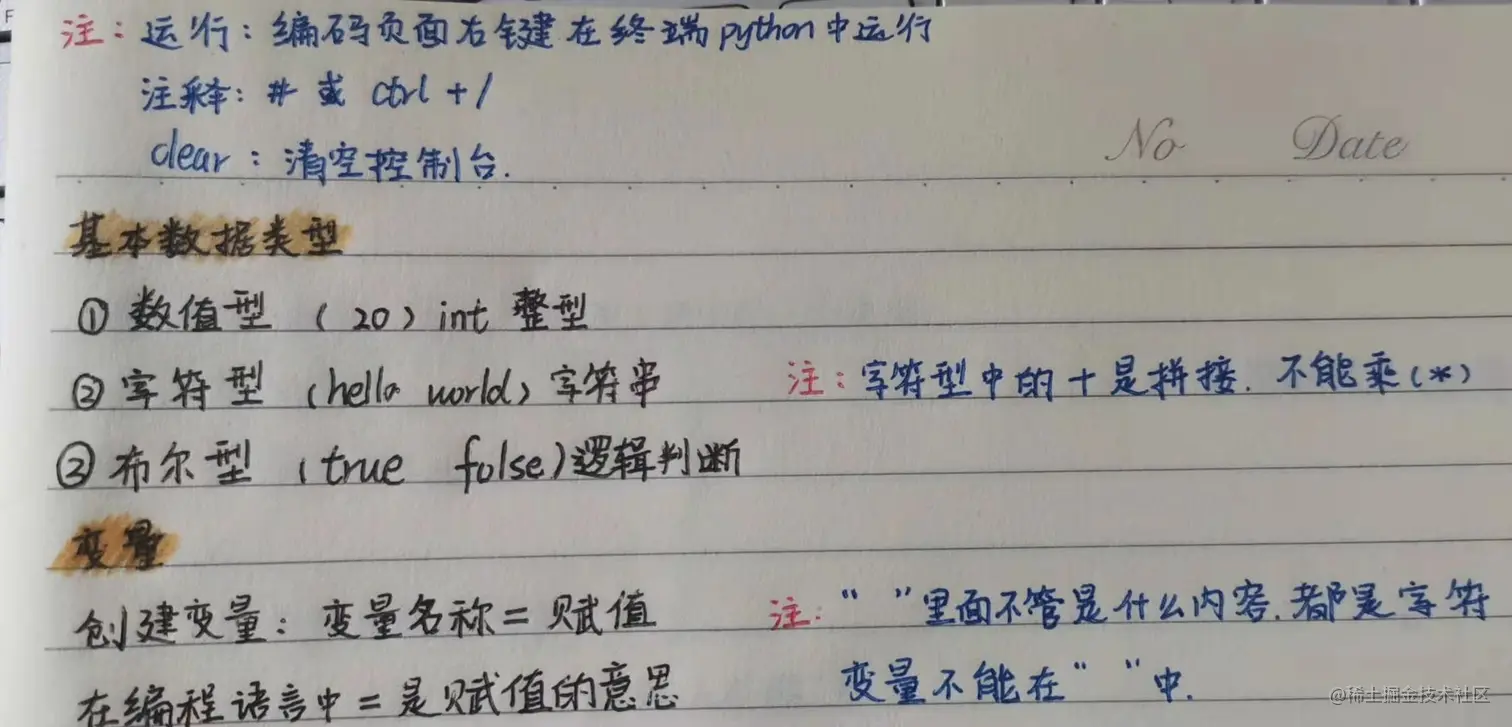 注：运行：编码页面右键在终端python中运行
注释：# 或 ctrl + /
clear：清空控制台.
No Date
基本数据类型
① 数值型 （20）int 整型
② 字符型 （hello world）字符串 注：字符型中的+是拼接. 不能乘(*)
③ 布尔型 （true false）逻辑判断
变量
创建变量：变量名称 = 赋值 注：“ ”里面不管是什么内容.都是字符
在编程语言中 = 是赋值的意思 变量不能在“ ”中.
@稀土掘金技术社区